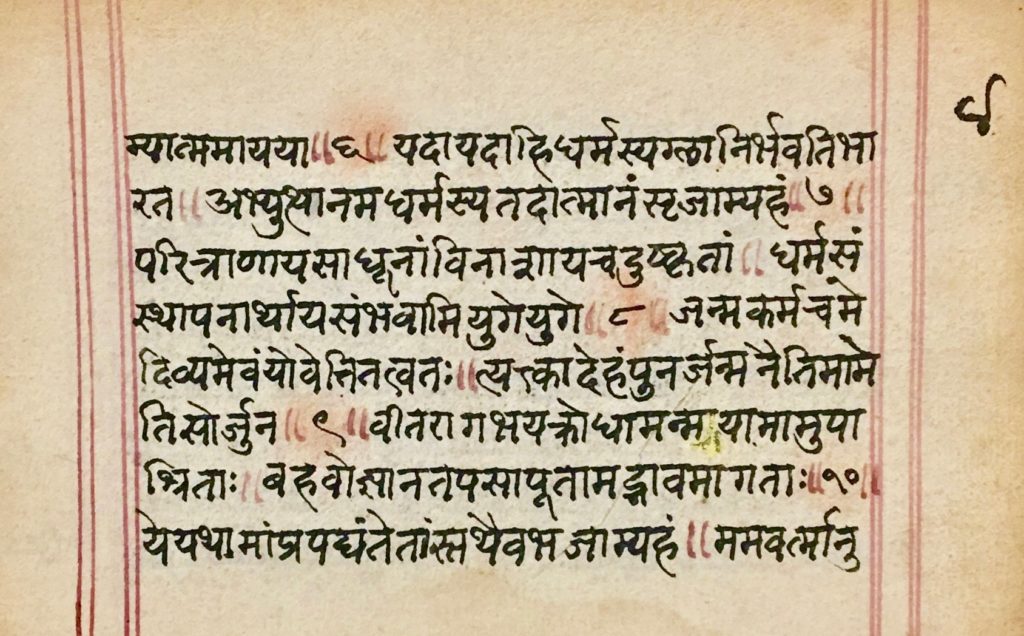 ४
म्यात्ममायया॥६॥यदायदाहिधर्मस्यग्लानिर्भवतिभा
रत॥अभ्युत्थानमधर्मस्यतदात्मानंसृजाम्यहं॥७॥
परित्राणायसाधूनांविनाशायचदुष्कृतां॥धर्मसं
स्थापनार्थायसंभवामियुगेयुगे॥८॥जन्मकर्मचमे
दिव्यमेवंयोवेत्तितत्वतः॥त्यक्त्कादेहंपुनर्जन्मनैतिमामे
तिसोर्जुन॥९॥वीतरागभयक्रोधामन्मयामामुपा
श्रिताः॥बहवोज्ञानतपसापूतामद्भावमागताः॥१०॥
येयथामांप्रपद्यंतेतांस्तथैवभजाम्यहं॥ममवर्त्मानु